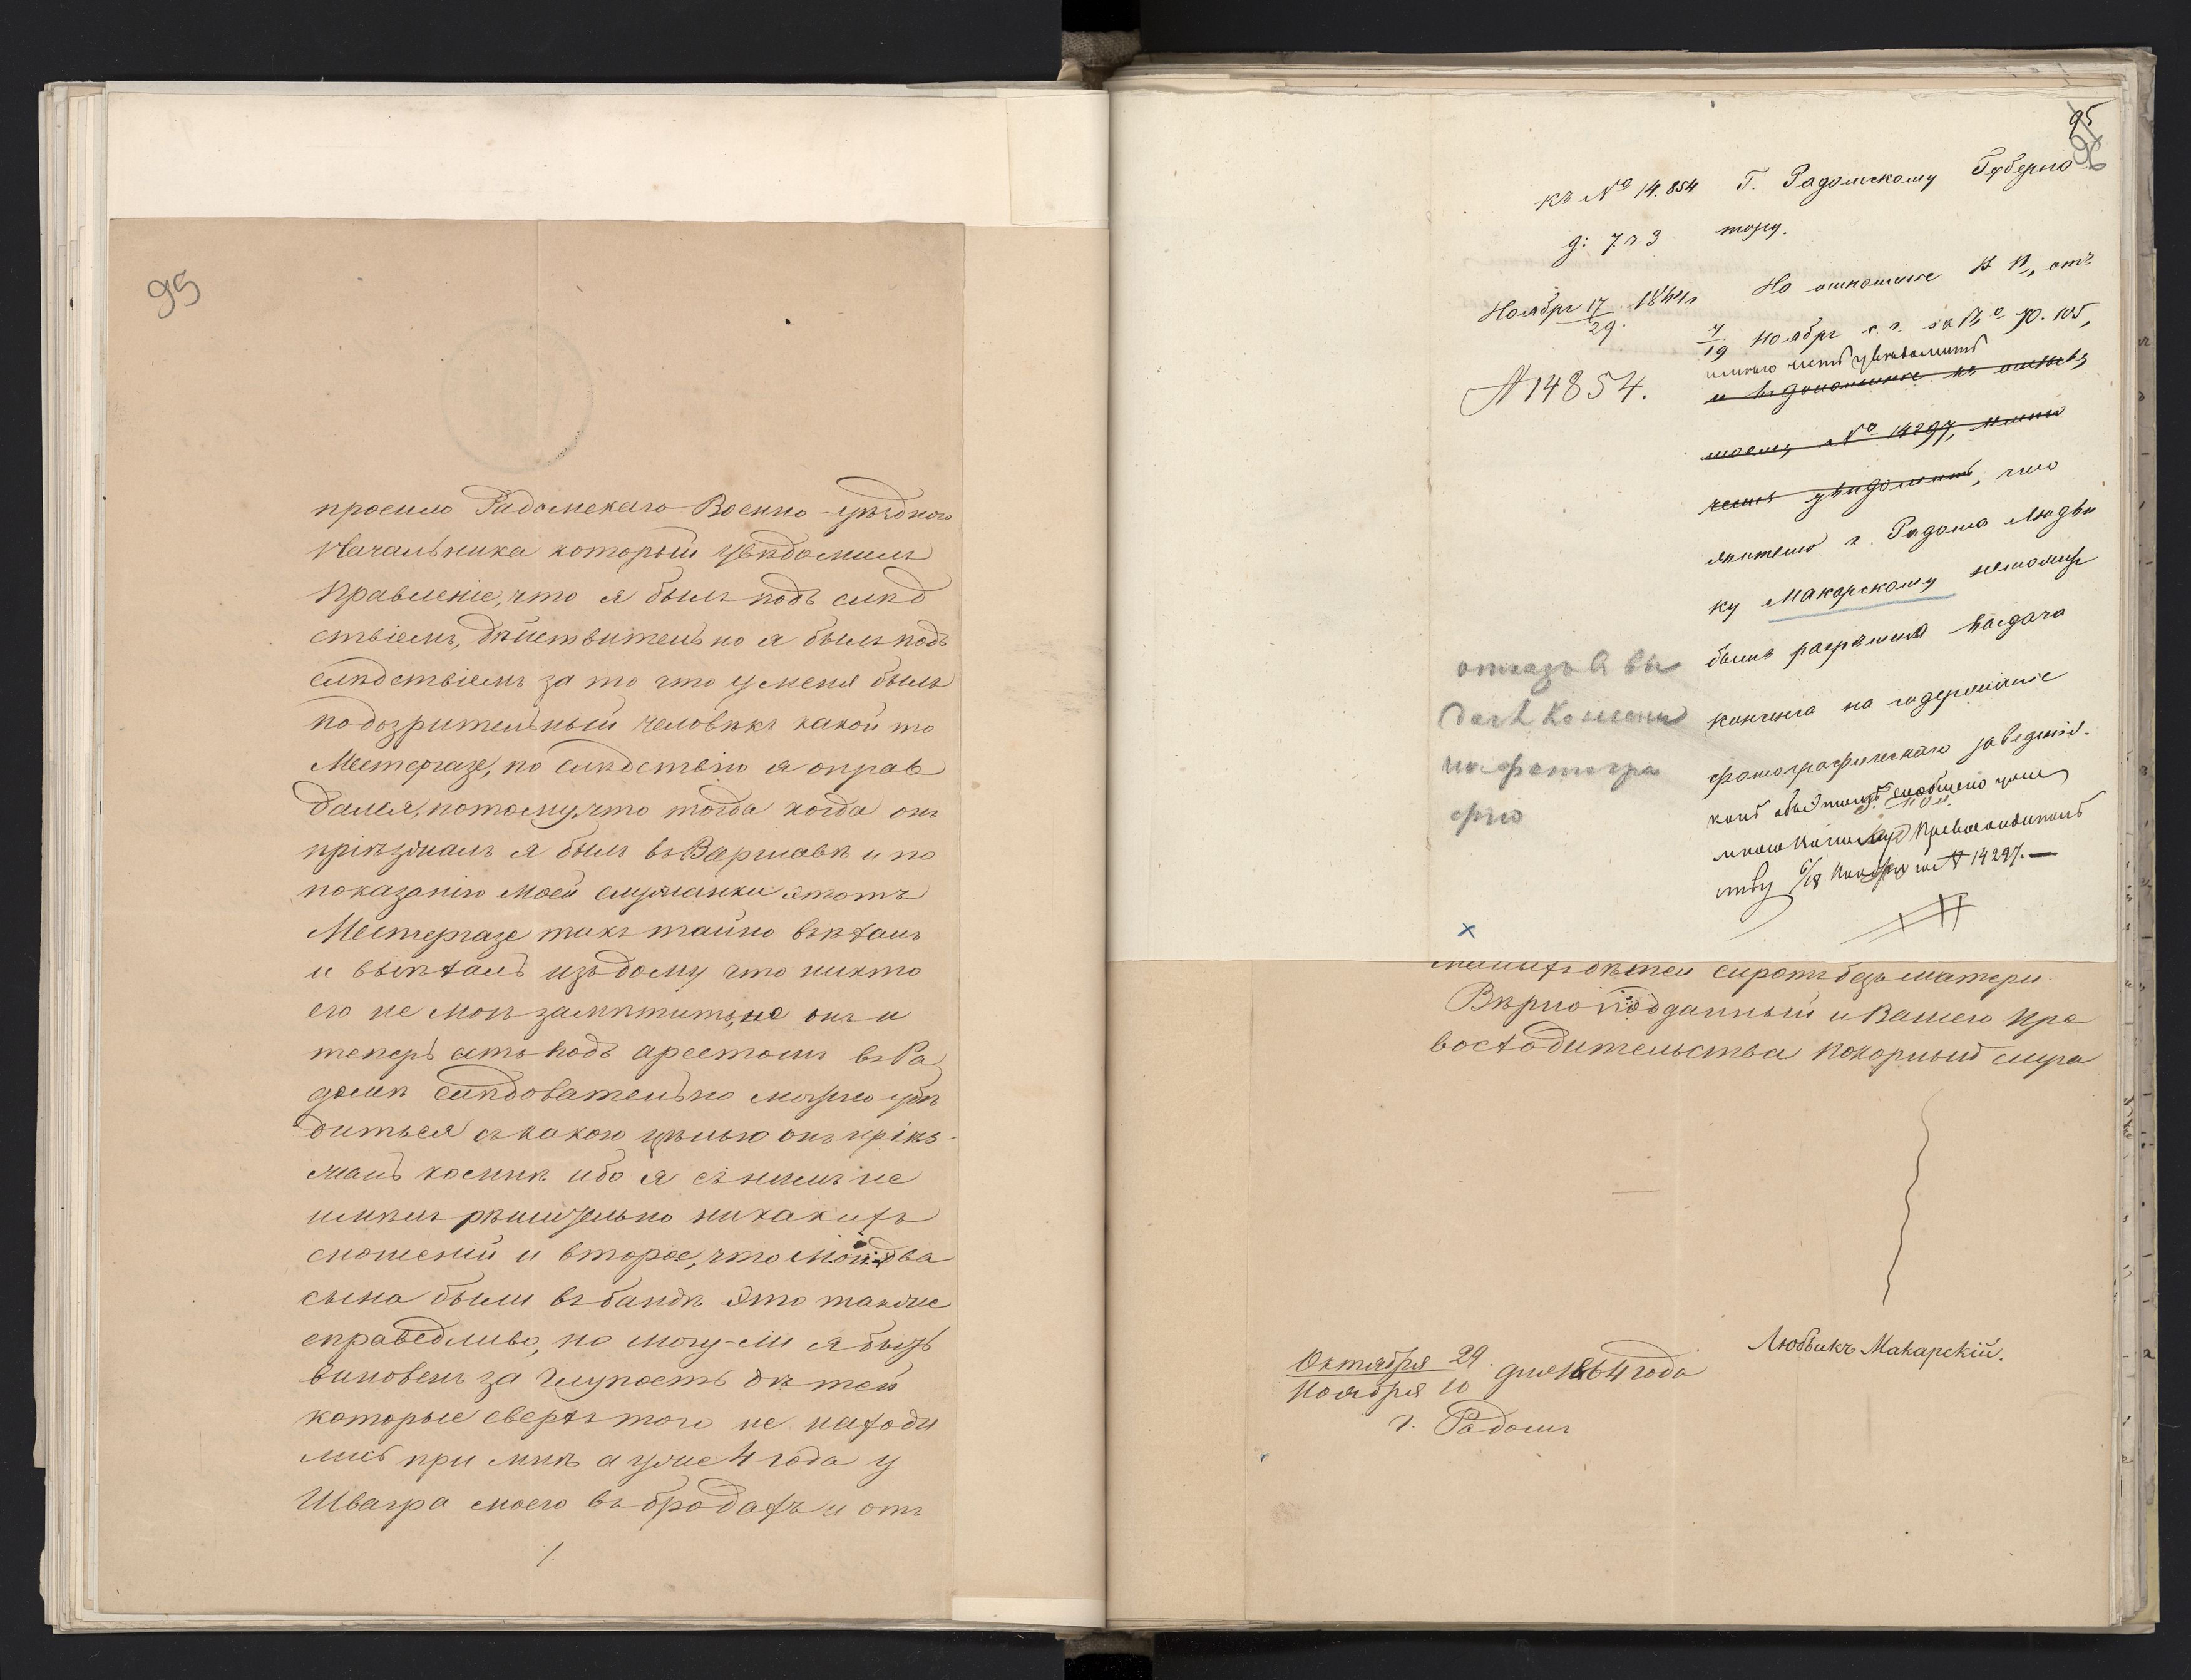 95
просило Радомскаго Военно-уѣзднаго
Начальника который увѣдомилъ
Правленіе, что я былъ подъ слѣд
ствіемъ, дѣйствительно я былъ подъ
слѣдствіемъ за то что у меня былъ
подозрительный человѣкъ какой то
по слѣдствію я оправ
дался, потому, что тогда когда онъ
пріѣзжалъ я былъ въ Варшавѣ и по
показанію моей служанки этотъ
такъ тайно въѣхалъ
и выѣхалъ изъ дому что никто
его не могъ замѣтить, но онъ и
теперь есть подъ арестомъ въ Ра
домѣ слѣдовательно можно убѣ
диться съ какою цѣлью онъ пріѣз-
жалъ ко мнѣ ибо я съ нимъ не
имѣлъ рѣшительно никакихъ
сношеній и второе, что мои два
сына были въ бандѣ это также
справедливо, но могу-ли я быть
виновенъ за глупость дѣтей
которые сверхъ того не находи
лись при мнѣ а уже 4 года у
Швагра моего въ бродахъ и отъ
1.
95
96
къ № 14.854 Г. Радомскому Губерна
д: 7 ч. 3 тору.
Ноября 17/29 1864 г. На отношеніе В П, отъ
7/19 Ноября с. г. за №
имѣю честь увѣдомить
№ 14854.
и въ дополненіе къ отзыву
моему № 14297, имѣю
честь увѣдомить, что
жителю г. Радома Людви
ку Макарскому не можетъ
быть разрѣшена выдача
консенса на содержаніе
фотографическаго заведенія.
сообщено уже
мною Вашему Превосходитель
ству 6/18 Ноября за № 14297.—
отказъ въ вы
дачѣ Консенса
на фотогра
фію
сиротъ безъ матери.
Вѣрноподданный и Вашего Пре
восходительства покорный слуга
Людвикъ Макарскій.
Октября 29/Ноября 10 дня 1864 года
г. Радомъ